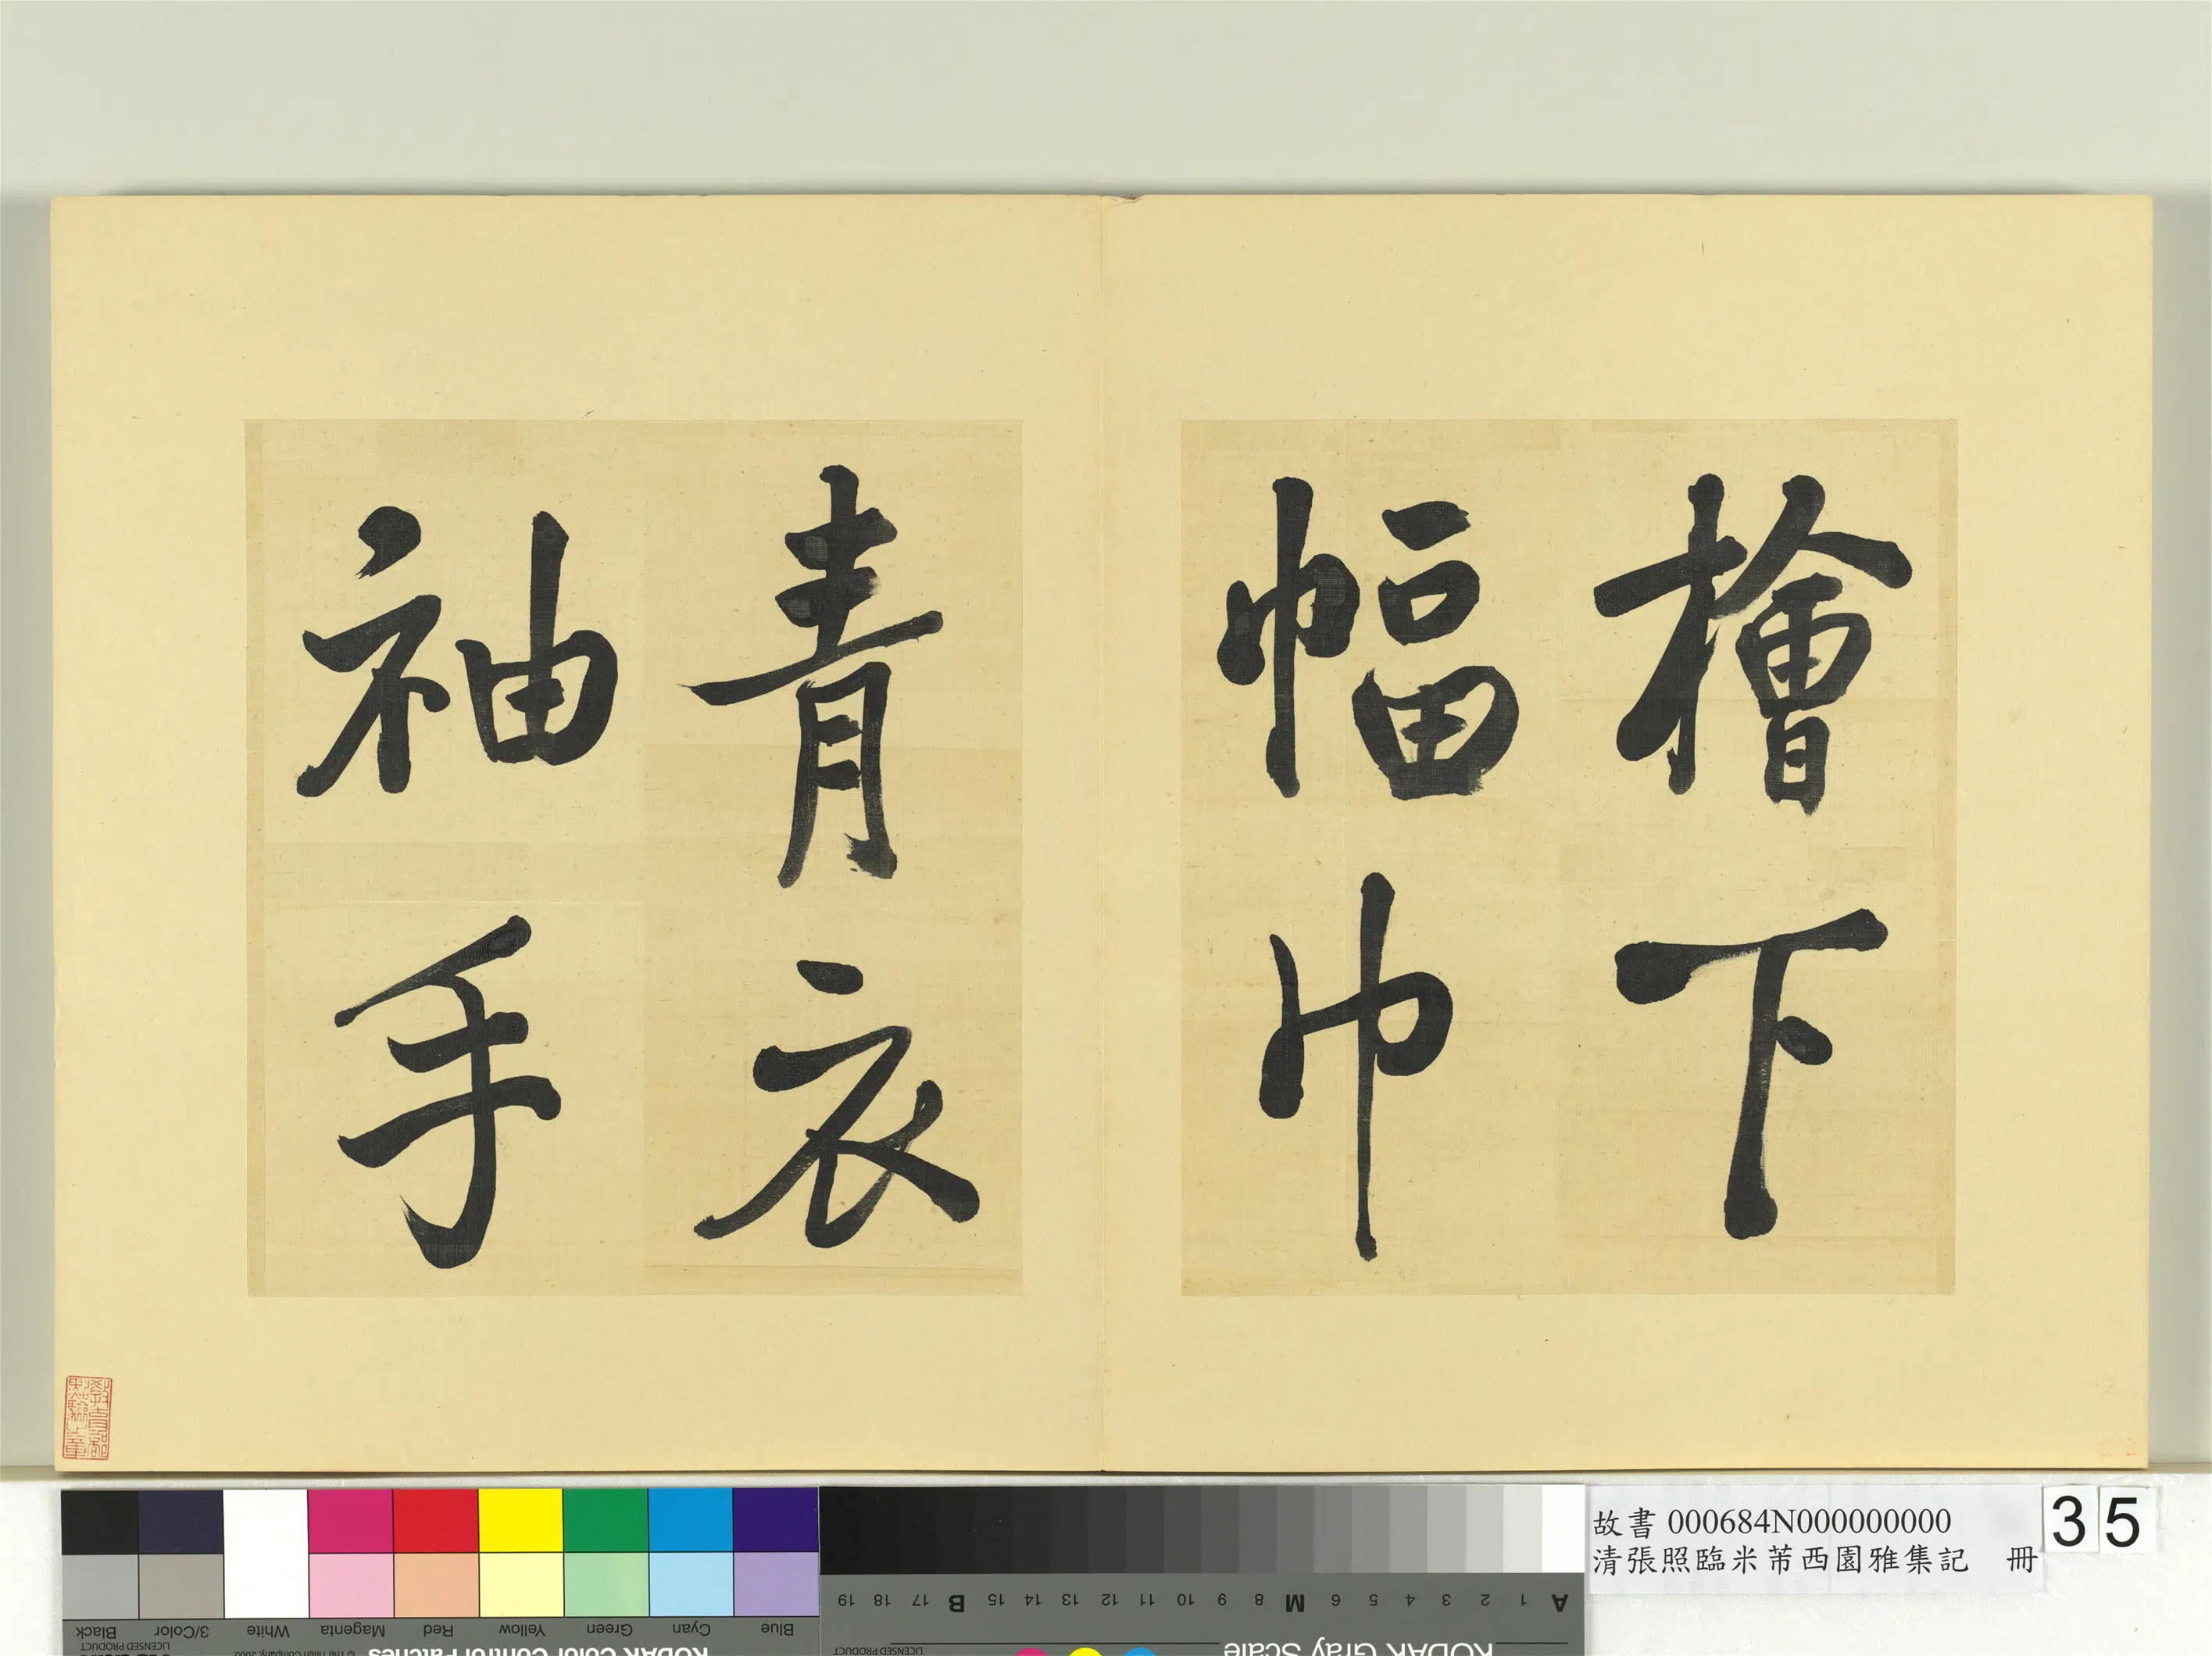 檜下
幅巾
青衣
袖手
教育部
點驗之章
故書 000684N000000000
清張照臨米芾西園雅集記 冊
35
Black
3/Color
White
Magenta
Red
Yellow
Green
Cyan
Blue
LICENSED PRODUCT
© The Tiffen Company, 2000
KODAK Color Control Patches
KODAK Gray Scale
LICENSED PRODUCT
A 1 2 3 4 5 6 M 8 9 10 11 12 13 14 15 B 17 18 19